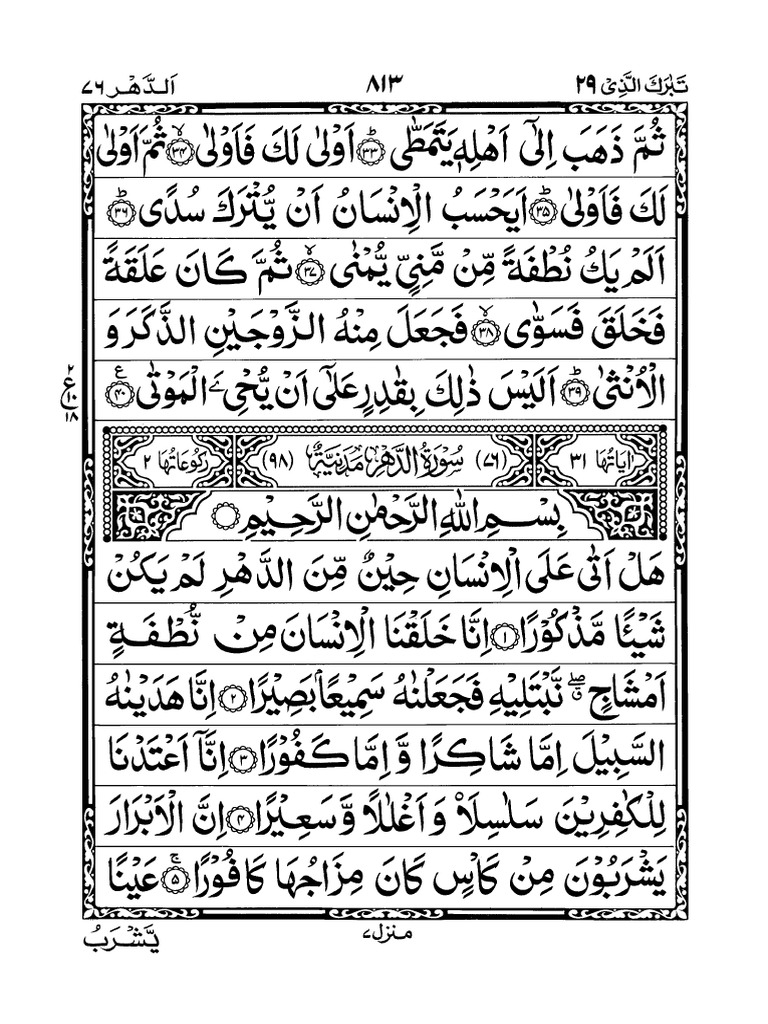 تَبٰرَكَ الَّذِىْ ۲۹ ۸۱۳ اَلدَّهْر ۷۶
ثُمَّ ذَهَبَ اِلٰٓى اَهْلِهٖ يَتَمَطّٰى ؕ۳۳ اَوْلٰى لَكَ فَاَوْلٰى ۙ۳۴ ثُمَّ اَوْلٰى
لَكَ فَاَوْلٰى ؕ۳۵ اَيَحْسَبُ الْاِنْسَانُ اَنْ يُّتْرَكَ سُدًى ؕ۳۶
اَلَمْ يَكُ نُطْفَةً مِّنْ مَّنِىٍّ يُّمْنٰى ۙ۳۷ ثُمَّ كَانَ عَلَقَةً
فَخَلَقَ فَسَوّٰى ۙ۳۸ فَجَعَلَ مِنْهُ الزَّوْجَيْنِ الذَّكَرَ وَ
الْاُنْثٰى ؕ۳۹ اَلَيْسَ ذٰلِكَ بِقٰدِرٍ عَلٰٓى اَنْ يُّحْيِۦَ الْمَوْتٰى ۴۰ ع
۲ ع ۱۰ ۱۸
اٰيَاتُهَا ۳۱ (۷۶) سُوْرَةُ الدَّهْرِ مَدَنِيَّةٌ (۹۸) رُكُوْعَاتُهَا ۲
بِسْمِ اللّٰهِ الرَّحْمٰنِ الرَّحِيْمِ
هَلْ اَتٰى عَلَى الْاِنْسَانِ حِيْنٌ مِّنَ الدَّهْرِ لَمْ يَكُنْ
شَيْئًا مَّذْكُوْرًا ۱ اِنَّا خَلَقْنَا الْاِنْسَانَ مِنْ نُّطْفَةٍ
اَمْشَاجٍ ۖۗ نَّبْتَلِيْهِ فَجَعَلْنٰهُ سَمِيْعًۢا بَصِيْرًا ۲ اِنَّا هَدَيْنٰهُ
السَّبِيْلَ اِمَّا شَاكِرًا وَّ اِمَّا كَفُوْرًا ۳ اِنَّاۤ اَعْتَدْنَا
لِلْكٰفِرِيْنَ سَلٰسِلَاۡ وَ اَغْلٰلًا وَّ سَعِيْرًا ۴ اِنَّ الْاَبْرَارَ
يَشْرَبُوْنَ مِنْ كَاْسٍ كَانَ مِزَاجُهَا كَافُوْرًا ۚ۵ عَيْنًا
منزل ۷
يَّشْرَبُ